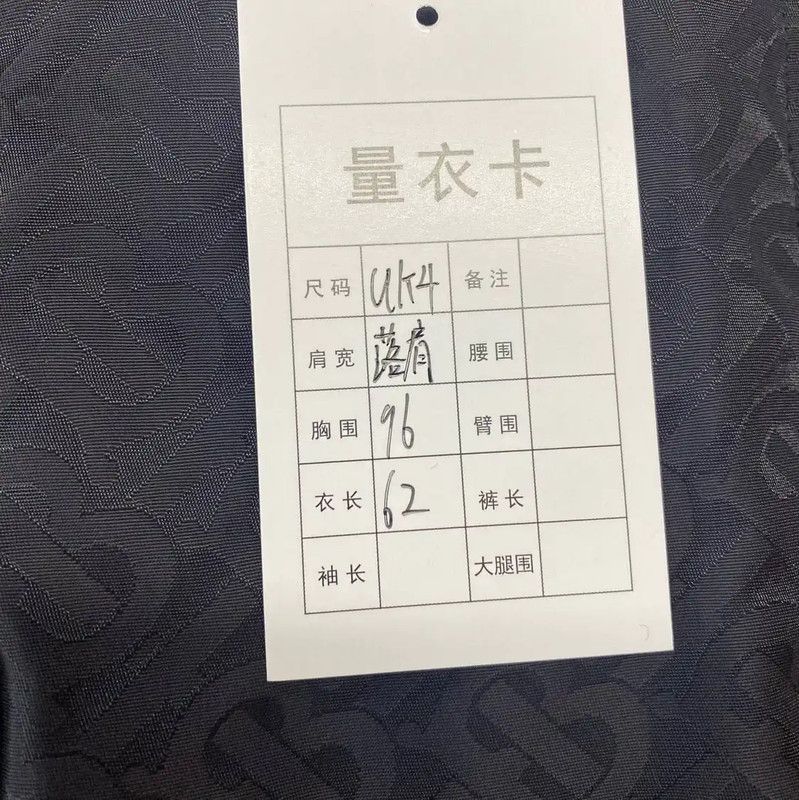 量衣卡
尺码 UK4 备注
肩宽 落肩 腰围
胸围 96 臂围
衣长 62 裤长
袖长 大腿围